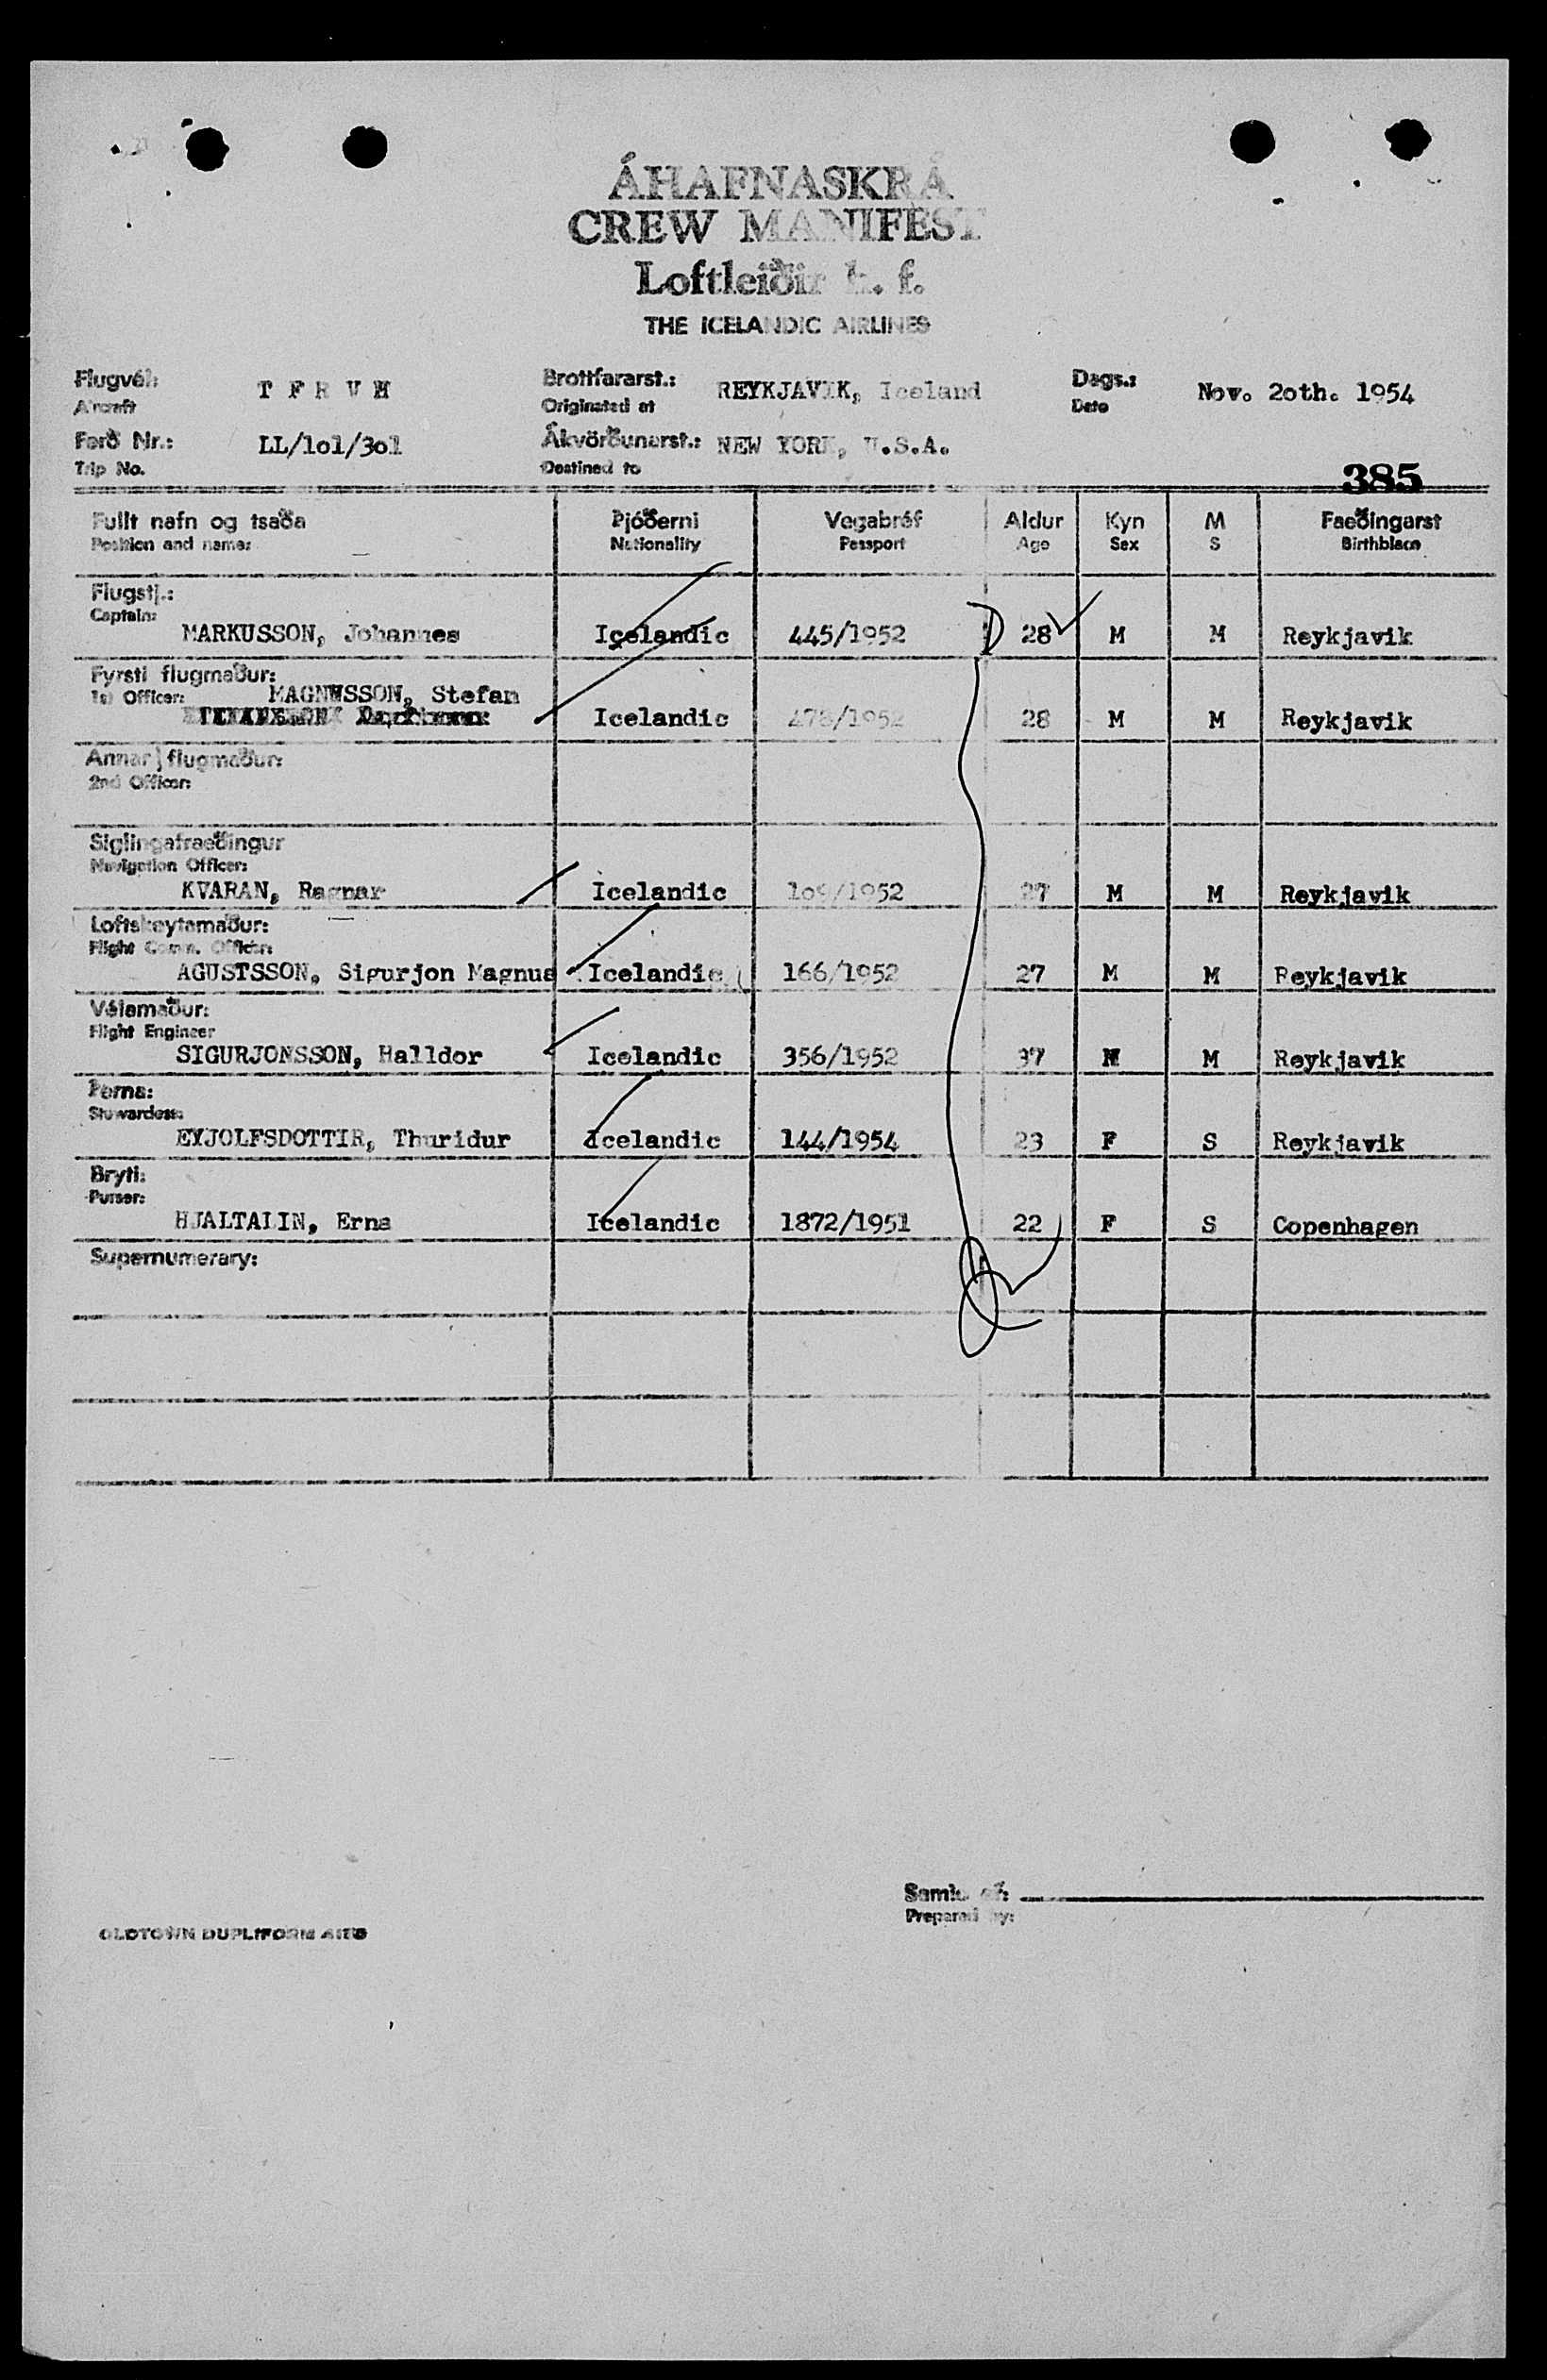 ÁHAFNASKRÁ
CREW MANIFEST
Loftleiðir h. f.
THE ICELANDIC AIRLINES
Flugvél: T F R V H Brottfararst.: REYKJAVIK, Iceland Dags.: Nov. 2oth. 1954
Aircraft Originated at Date
Ferð Nr.: LL/1o1/3o1 Ákvörðunarst.: NEW YORK, U.S.A.
Trip No. Destined to
385
Fullt nafn og tsaða Þjóðerni Vegabréf Aldur Kyn M Faeðingarst
Position and name: Nationality Passport Age Sex S Birthblace
Flugstj.:
Captain:
MARKUSSON, Johannes Icelandic 445/1952 28 M M Reykjavik
Fyrsti flugmaður:
1st Officer: MAGNUSSON, Stefan
Icelandic 478/1952 28 M M Reykjavik
Annar flugmaður:
2nd Officer:
Siglingafraeðingur
Navigation Officer:
KVARAN, Ragnar Icelandic 1o9/1952 27 M M Reykjavik
Loftskeytamaður:
Flight Comm. Officer:
AGUSTSSON, Sigurjon Magnus Icelandic 166/1952 27 M M Reykjavik
Vélamaður:
Flight Engineer
SIGURJONSSON, Halldor Icelandic 356/1952 37 M M Reykjavik
Þerna:
Stuwardess:
EYJOLFSDOTTIR, Thuridur Icelandic 144/1954 23 F S Reykjavik
Bryti:
Purser:
HJALTALIN, Erna Icelandic 1872/1951 22 F S Copenhagen
Supernumerary:
Samþ. af:
Prepared by:
OLDTOWN DUPLIFORM